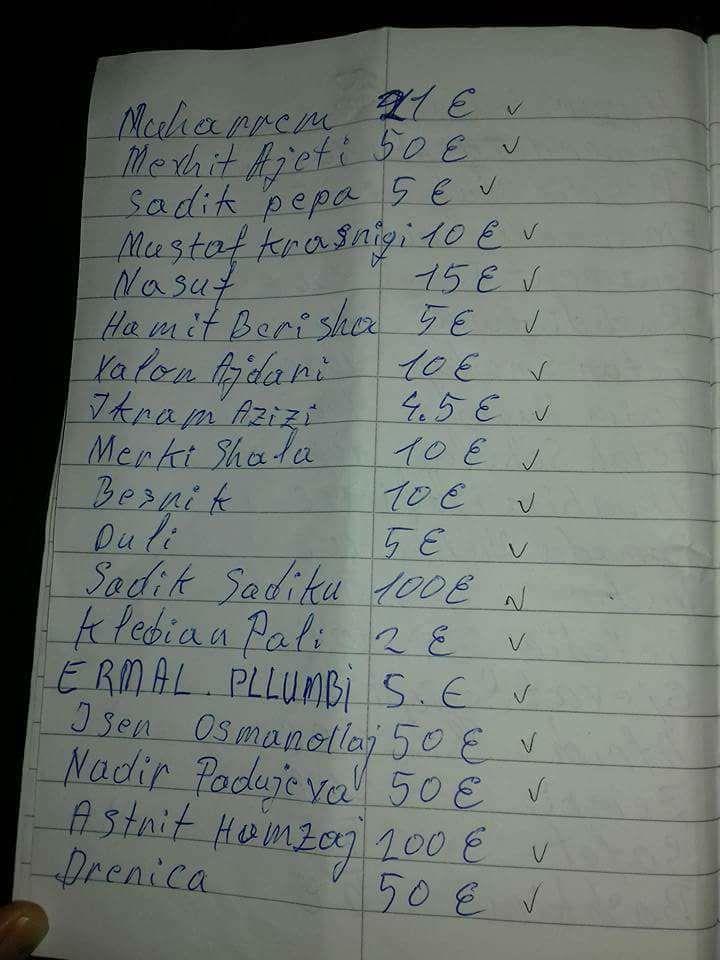 Muharrem 21 € ✓
Mexhit Ajeti 50 € ✓
Sadik pepa 5 € ✓
Mustaf krasnigi 10 € ✓
Nasuf 15 € ✓
Hamit Berisha 5 € ✓
Valon Ajdari 10 € ✓
Ikram Azizi 4.5 € ✓
Merki Shala 10 € ✓
Besnik 10 € ✓
Duli 5 € ✓
Sadik Sadiku 100 € ✓
Klebian Pali 2 € ✓
ERMAL. PLLUMBi 5. € ✓
Isen Osmanollaj 50 € ✓
Nadir Padujeva 50 € ✓
Astrit Hamzaj 100 € ✓
Drenica 50 € ✓